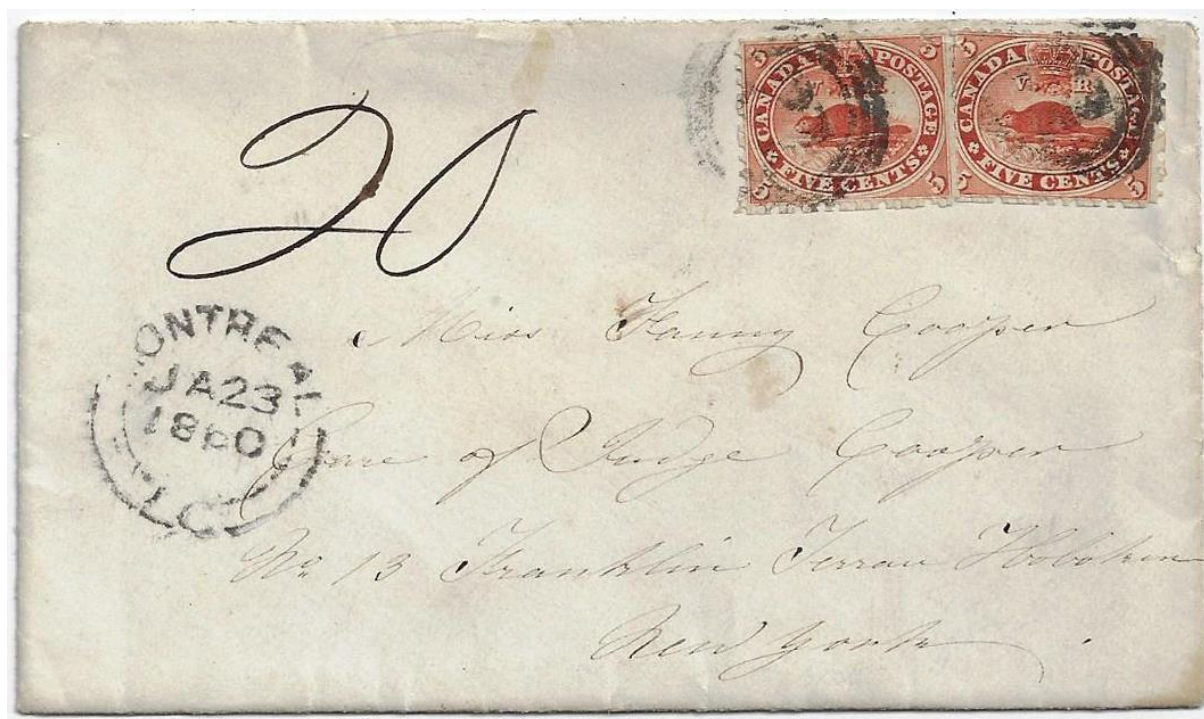 5 5
CANADA POSTAGE
V R
FIVE CENTS
5 5
5 5
CANADA POSTAGE
V R
FIVE CENTS
5 5
20
MONTREAL
JA 23
1860
L.C.
Miss Fanny Cooper
Care of Judge Cooper
No. 13 Franklin Terrace Hoboken
New York